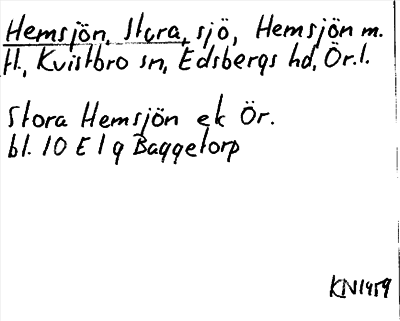 Hemsjön, Stora, sjö, Hemsjön m.
fl., Kvistbro sn, Edsbergs hd, Ör.l.
Stora Hemsjön ek Ör.
bl. 10 E 1 g Baggetorp
KN1959